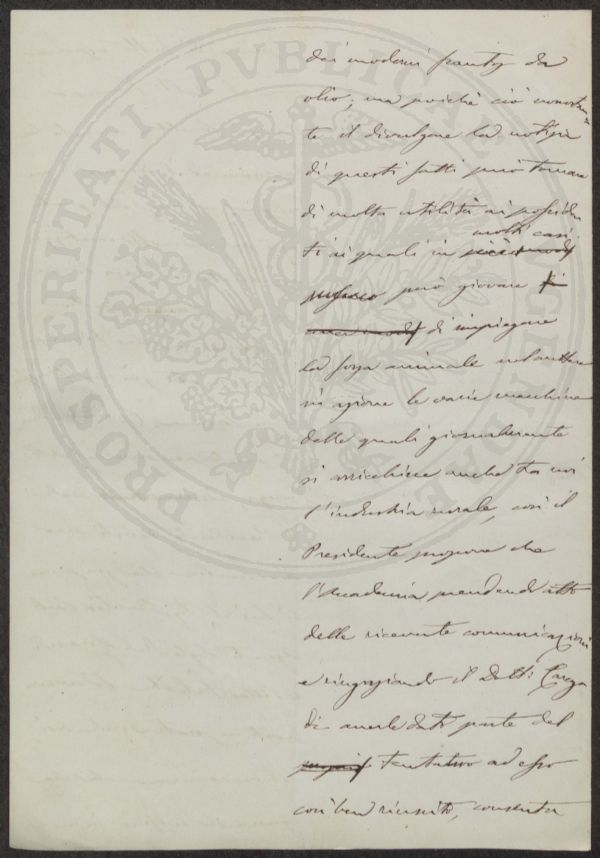 PROSPERITATI PVBLICAE AVGENDAE
dei moderni frantoj da
olio; ma poichè ciò nonostan=
te il divulgare la notizia
di questi fatti può tornare
di molta utilità ai possiden
molti casi
ti ai quali in
può giovare
di impiegare
la forza animale nel mettere
in azione le varie macchine
delle quali giornalmente
si arricchisce anche tra noi
l'industria rurale, così il
Presidente propone che
l'Accademia prendendo atto
delle ricevute comunicazioni
e ringraziando il Dott. Carega
di averle dato parte del
tentativo ad esso
così ben riuscito, consenta